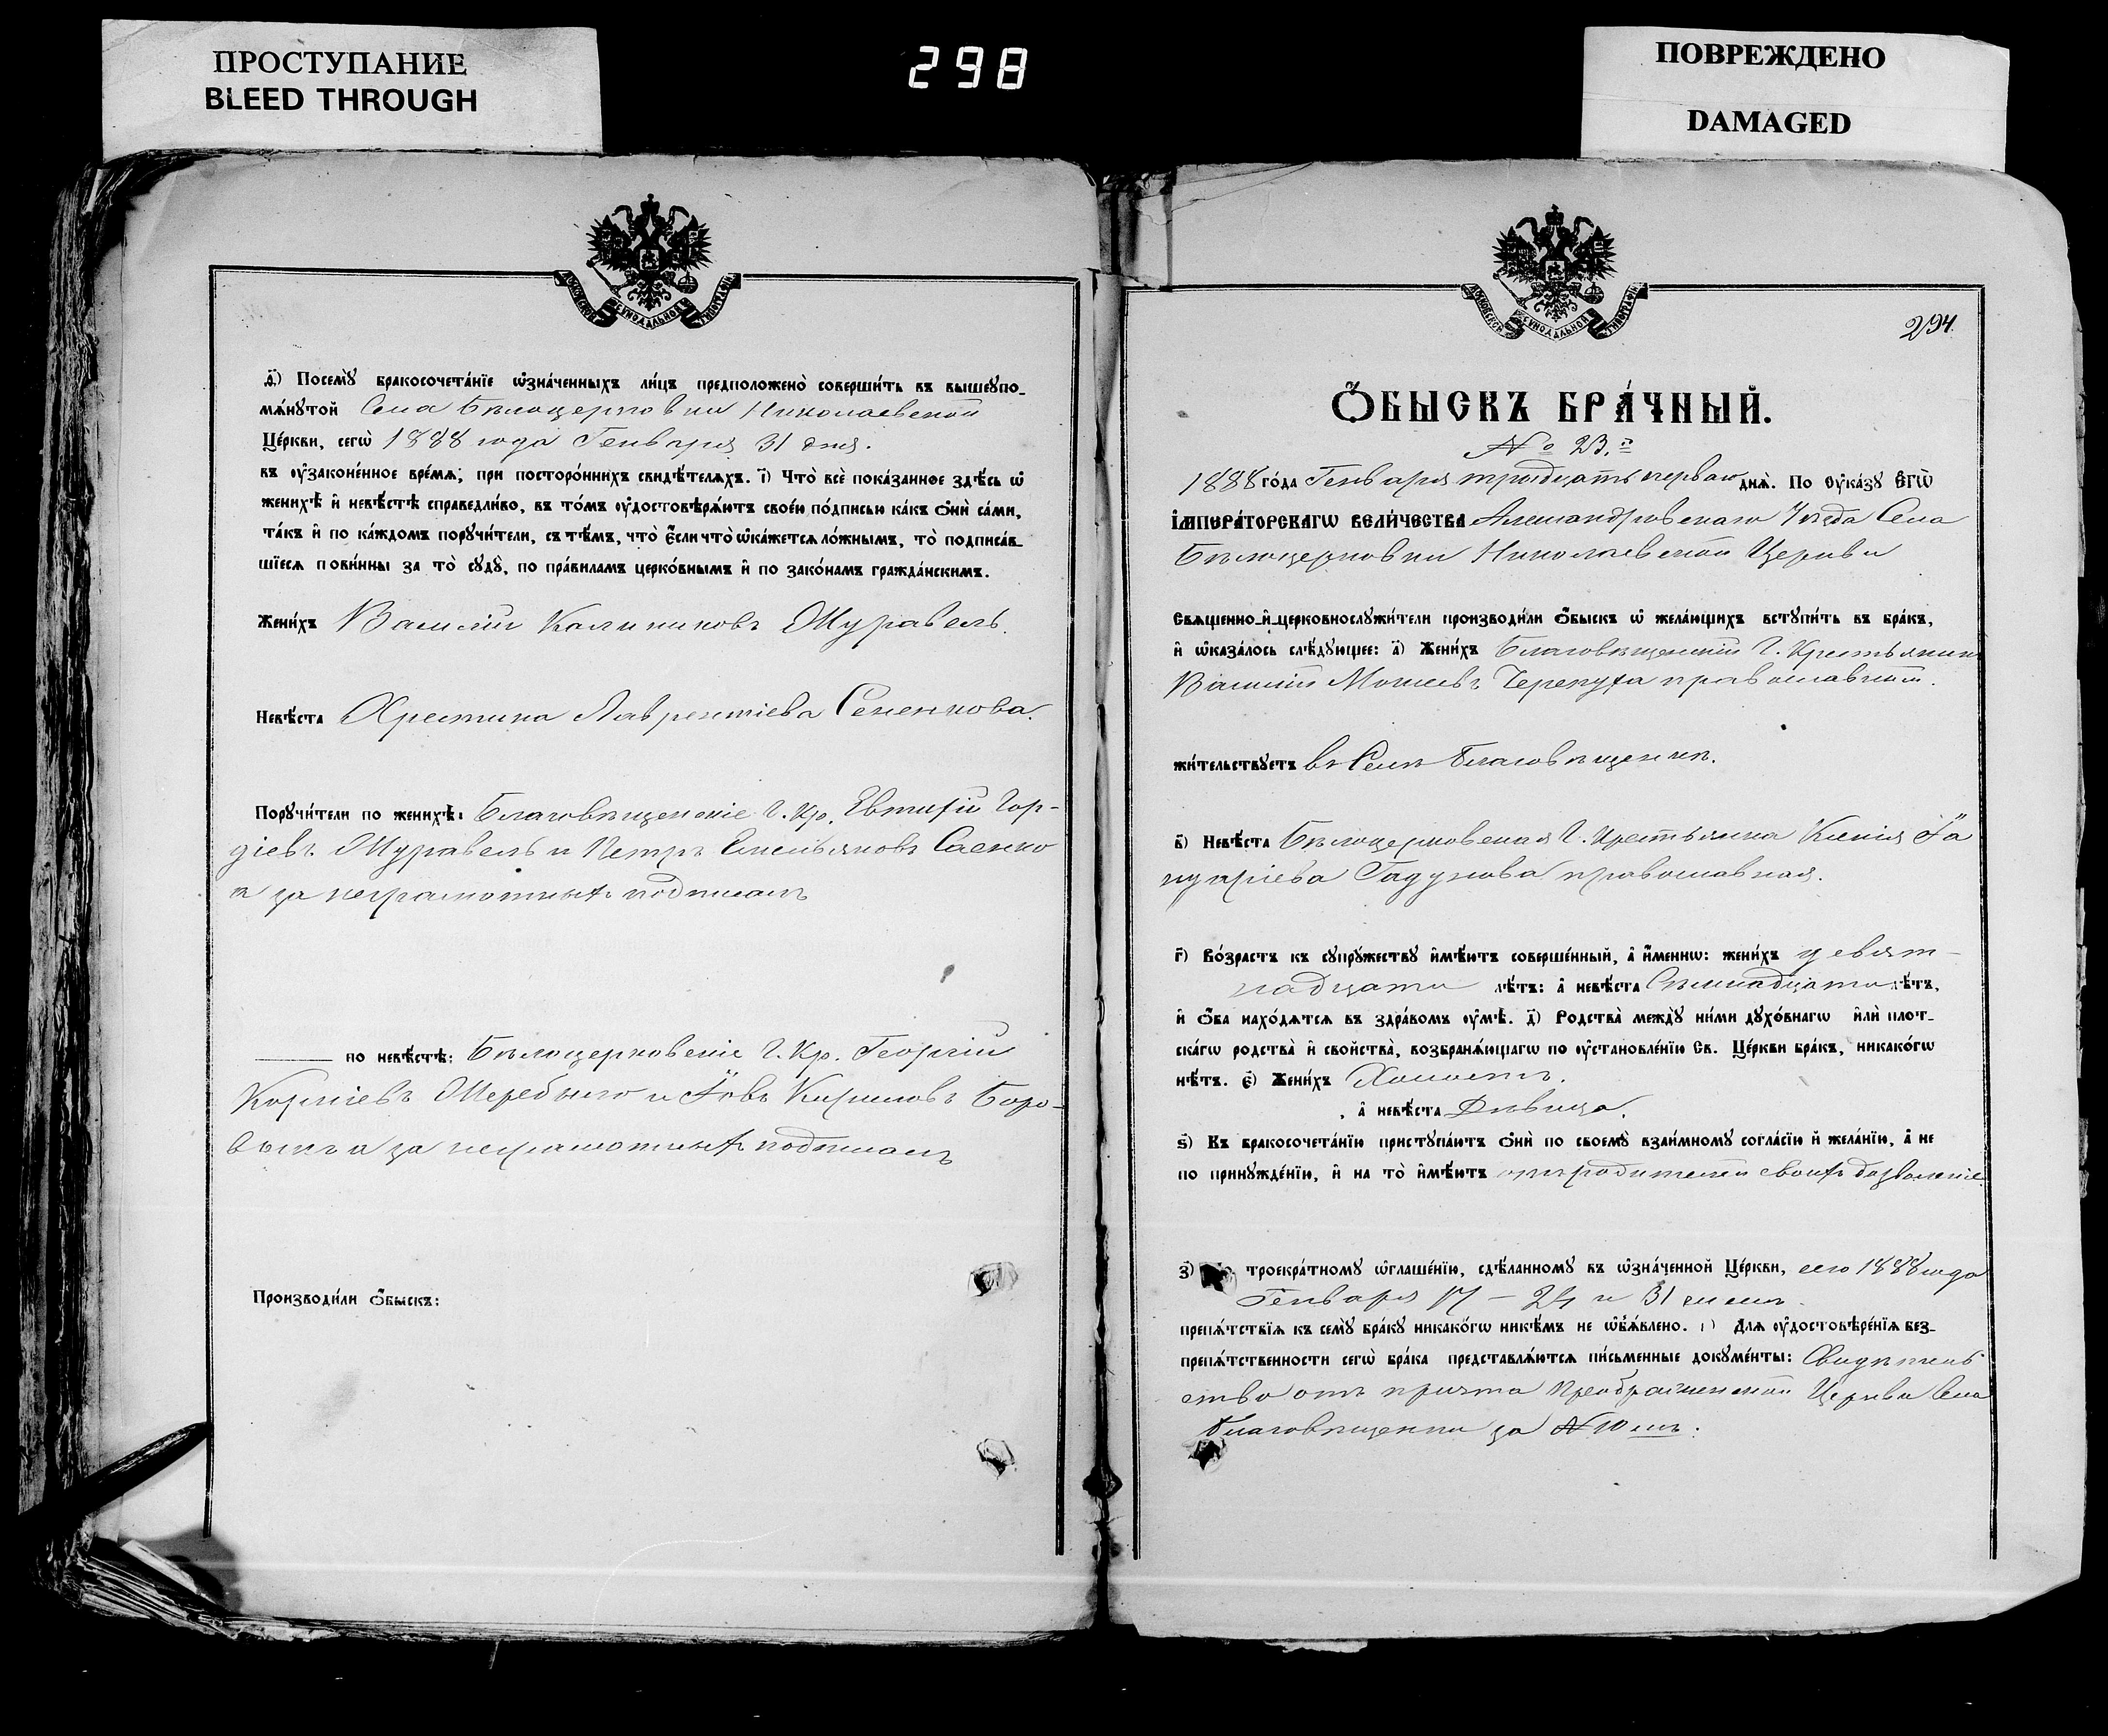 ПРОСТУПАНИЕ
BLEED THROUGH
298
ПОВРЕЖДЕНО
DAMAGED
Посемꙋ̀ бракосочета́нїе ѡ҆зна́ченныхъ ли́цъ предположено̀ соверши́ть въ вышеꙋпо-
мѧ́нꙋтой Села Бѣлоцерковки Николаевской
Це́ркви, сегѡ̀ 1888 года Генваря 31 дня.
въ ᲂу҆зако́не́нное вре́мѧ, при посторо́ннихъ свидѣ́телѧхъ. і҃) Что̀ всѐ пока́занное здѣ́сь ѡ҆
женихѣ̀ и҆ невѣ́стѣ справедли́во, въ то́мъ ᲂу҆достовѣрѧ́ютъ свое́ю по́дписью ка́къ ѻ҆нѝ са́ми,
та́къ и҆ по ка́ждомъ порꙋчи́тели, съ тѣ́мъ, что̀ є҆́сли что̀ ѡ҆ка́жетсѧ ло́жнымъ, то̀ подписа́в-
шїесѧ пови́нны за то̀ сꙋдꙋ̀, по пра́виламъ церко́внымъ и҆ по зако́намъ гражда́нскимъ.
Жени́хъ Василій Калиниковъ Журавель.
Невѣ́ста Христина Лаврентіева Семенкова.
Порꙋчи́тели по женихѣ̀: Благовѣщенскіе Г. Кр. Евтифій Гор-
діевъ Журавель и Петръ Емельяновъ Саенко
а за неграмотныхъ подписалъ
по невѣ́стѣ: Бѣлоцерковскіе Г. Кр. Георгій
Корніевъ Жеребыло и Іовъ Кириловъ Боро-
выкъ а за неграмотныхъ подписалъ
Производи́ли ѻ҆́быскъ:
294.
Ѻ҆́БЫСКЪ БРА́ЧНЫЙ.
№ 23.й
1888 го́да Генваря тридцать перваго днѧ̀. По Оу҆ка́зꙋ Є҆ГѠ̀
І҆МПЕРА́ТОРСКАГѠ ВЕЛИ́ЧЕСТВА Александровскаго Уѣзда Села
Бѣлоцерковки Николаевской Церкви
Свѧще́нно-и҆-церковнослꙋжи́тели производи́ли ѻ҆́быскъ ѡ҆ жела́ющихъ встꙋпи́ть въ бра́къ,
и҆ ѡ҆каза́лось слѣ́дꙋющее: а҃) Жени́хъ Благовѣщенскій Г. Крестьянинъ
Василій Моисеевъ Черепуха православный.
жи́тельствꙋетъ въ Селѣ Благовѣщенкѣ.
в҃) Невѣ́ста Бѣлоцерковская Г. Крестьянка Ксенія Іа
нуаріева Гадунова православная.
г҃) Во́зрастъ къ сꙋпрꙋ́жествꙋ и҆мѣ́ютъ соверше́нный, а҆ и҆́меннѡ: жени́хъ девят-
надцати лѣ́тъ: а҆ невѣ́ста Семнадцати лѣ́тъ,
и҆ ѻ҆́ба нахо́дѧтсѧ въ здра́вомъ ᲂу҆мѣ̀. д҃) Родства̀ междꙋ̀ ни́ми дꙋхо́внагѡ и҆лѝ пло́т-
скагѡ родства̀ и҆ сво́йства̀, возбранѧ́ющагѡ по ᲂу҆становле́нїю Св. Це́ркви бра́къ, никако́гѡ
нѣ́тъ. є҃) Жени́хъ Холостъ.
, а҆ невѣ́ста Дѣвица.
ѕ҃) Къ бракосочета́нїю пристꙋпа́ютъ ѻ҆нѝ по своемꙋ̀ взаи́мномꙋ согла́сїю и҆ жела́нїю, а҆ не
по принꙋжде́нїю, и҆ на то̀ и҆мѣ́ютъ отъ родителей своихъ дозволеніе.
з҃) троекра́тномꙋ ѡ҆глаше́нїю, сдѣ́ланномꙋ въ ѡ҆зна́ченной Це́ркви, сего 1888 года
Генваря 17 – 24 и 31 чиселъ.
препѧ́тствїѧ къ семꙋ̀ бра́кꙋ никако́гѡ никѣ́мъ не ѡ҆б̾ѧ́влено. Длѧ ᲂу҆достовѣре́нїѧ без-
препѧ́тственности сегѡ̀ бра́ка представлѧ́ютсѧ пи́сьменные докꙋме́нты: Свидѣтель
ство отъ причта Преображенской Церкви Села
Благовѣщенки за № 10 мъ.